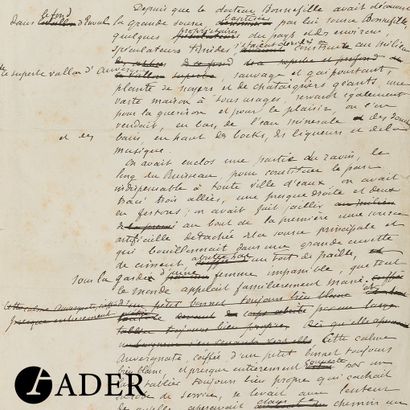 Depuis que le docteur Bonnefille avait découvert
la grande source par lui source Bonnefille
quelques propriétaires du pays et des environs,
spéculateurs timides au milieu
superbe vallon d'Auvergne sauvage et gai pourtant,
planté de noyers et de châtaigniers géants, une
vaste maison à tous usages, servant également
pour la guérison et pour le plaisir, où l'on
vendait, en bas, de l'eau minérale des douches
et des bains, en haut des bocks, des liqueurs et de la
musique.
On avait enclos une partie du ravin, le
long du ruisseau, pour constituer le parc
indispensable à toute ville d'eaux; on avait
tracé trois allées, une presque droite et deux
en festons; on avait fait jaillir
au bout de la première une source
artificielle détachée de la source principale et
qui bouillonnait dans une grande cuvette
de ciment, abritée par un toit de paille,
sous la garde d'une femme impassible, que tout
le monde appelait familièrement Marie.
Cette calme
Auvergnate, coiffée d'un petit bonnet toujours
bien blanc, et presque entièrement couverte par un
tablier toujours bien propre qui cachait
de service, se levait avec lenteur
chemin un
ADER